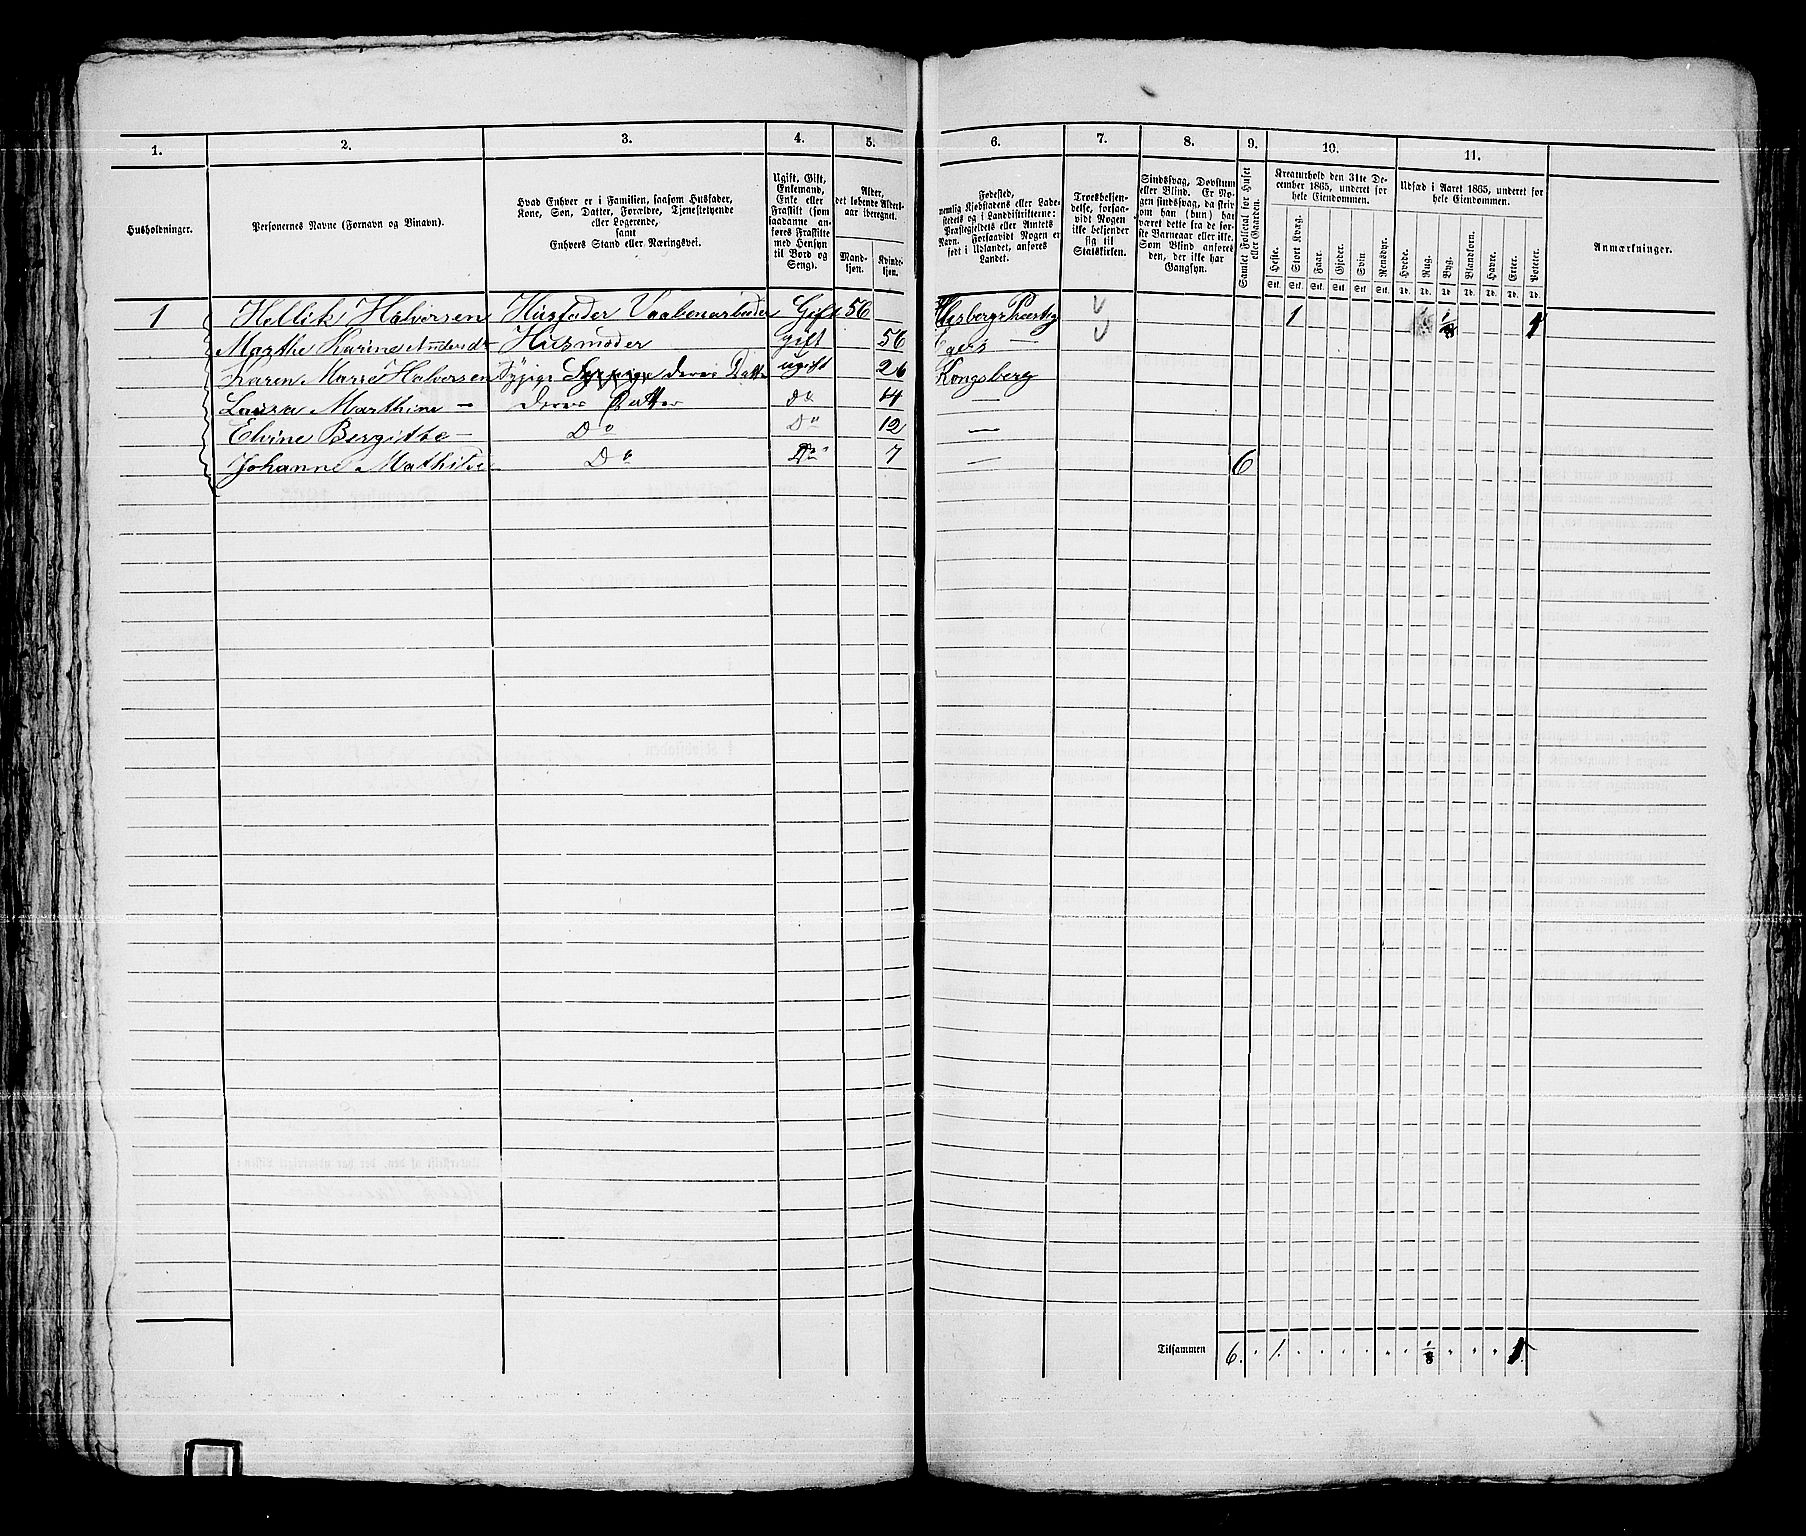 1. 2. 3. 4. 5. 6. 7. 8. 9. 10. 11.
Husholdninger.
Personernes Navne (Fornavn og Binavn).
Hvad Enhver er i Familien, saasom Husfader,
Kone, Søn, Datter, Forældre, Tjenestetyende
eller Logerende,
samt
Enhvers Stand eller Næringsvei.
Ugift, Gift,
Enkemand,
Enke eller
Fraskilt (som
saadanne an-
føres Fraskilte
med Hensyn
til Bord og
Seng).
Alder,
det løbende Alders-
aar iberegnet.
Mand-
kjøn.
Kvinde-
kjøn.
Fødested,
nemlig Kjøbstadens eller Lade-
stedets og i Landdistrikterne:
Præstegjeldets eller Amtets
Navn. Forsaavidt Nogen er
født i Udlandet, anføres
Landet.
Troesbekjen-
delse, forsaa-
vidt Nogen
ikke bekjender
sig til
Statskirken.
Sindssvag, Døvstum
eller Blind. Er No-
gen sindssvag, da skriv
om han (hun) har
været dette fra de før-
ste Barneaar eller ikke.
Som Blind anføres
den, der ikke har
Gangsyn.
Samlet Folketal for Huset
eller Gaarden.
Kreaturhold den 31te De-
cember 1865, underet for
hele Eiendommen.
Heste. Stort Kvæg. Faar. Gjeder. Svin. Rensdyr.
Stk. Stk. Stk. Stk. Stk. Stk.
Udsæd i Aaret 1865, underet for
hele Eiendommen.
Hvede. Rug. Byg. Blandkorn. Havre. Erter. Poteter.
Td. Td. Td. Td. Td. Td. Td.
Anmærkninger.
1 Hellik Halvorsen Husfader Vaabenarbeider Gift 56 1 1/8 1
Marthe Karine Husmoder Gift 56 Egers —
Karen Marie Halvorsen Sypige deres Datter ugift 26 Kongsberg
Laura Marthine — deres Datter Do 14 —
Elvine Bergitte — Do Do 12 —
Johanne Mathilde Do Do 7 — 6
Tilsammen 6. 1. 1/8 1.